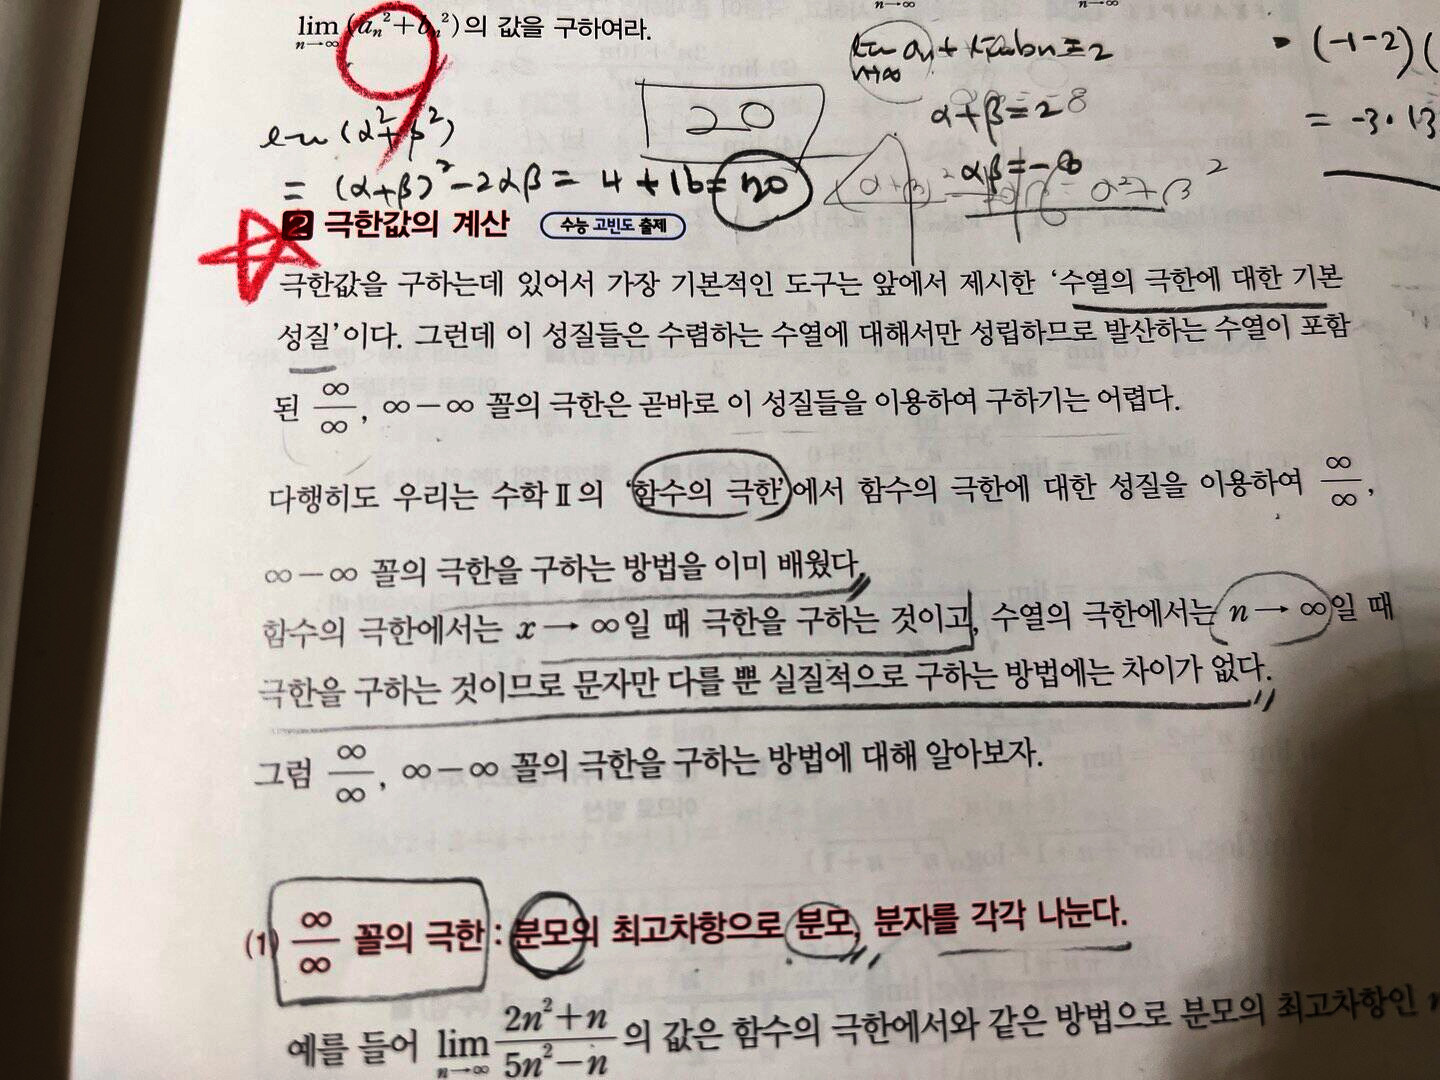 lim n→∞ (aₙ²+bₙ²)의 값을 구하여라.
lim n→∞ aₙ + lim bₙ = 2
= (-1-2)(
α+β=2
= -3·13
20
(α²+β²)
αβ=-8
= (α+β)²-2αβ = 4+16=20
α²+β²
2 극한값의 계산 수능 고빈도 출제
극한값을 구하는데 있어서 가장 기본적인 도구는 앞에서 제시한 ‘수열의 극한에 대한 기본
성질’이다. 그런데 이 성질들은 수렴하는 수열에 대해서만 성립하므로 발산하는 수열이 포함
된 ∞/∞, ∞-∞ 꼴의 극한은 곧바로 이 성질들을 이용하여 구하기는 어렵다.
다행히도 우리는 수학Ⅱ의 ‘함수의 극한’에서 함수의 극한에 대한 성질을 이용하여 ∞/∞,
∞-∞ 꼴의 극한을 구하는 방법을 이미 배웠다.
함수의 극한에서는 x→∞일 때 극한을 구하는 것이고, 수열의 극한에서는 n→∞일 때
극한을 구하는 것이므로 문자만 다를 뿐 실질적으로 구하는 방법에는 차이가 없다.
그럼 ∞/∞, ∞-∞ 꼴의 극한을 구하는 방법에 대해 알아보자.
(1) ∞/∞ 꼴의 극한 : 분모의 최고차항으로 분모, 분자를 각각 나눈다.
예를 들어 lim n→∞ (2n²+n)/(5n²-n)의 값은 함수의 극한에서와 같은 방법으로 분모의 최고차항인